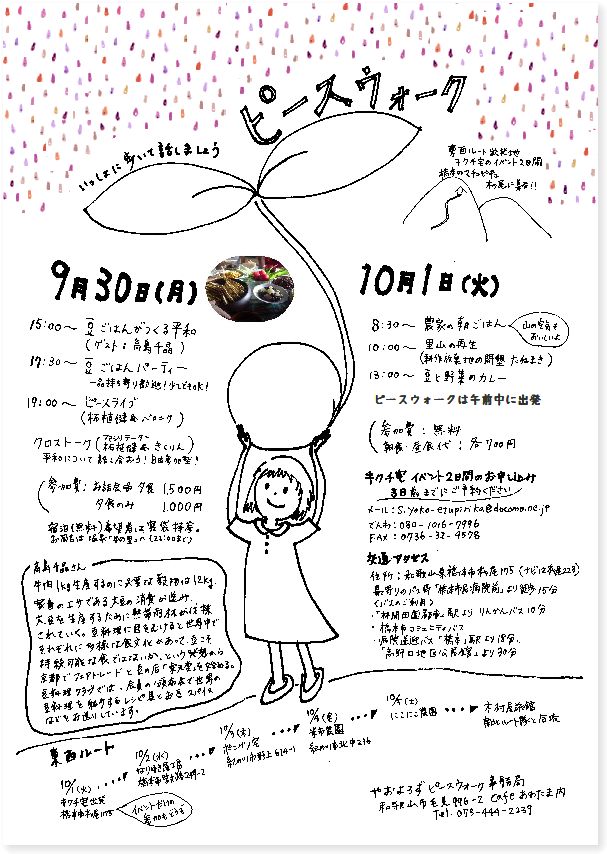 ピースウォーク
いっしょに歩いて話しましょう
東西ルート出発地
キクチ宅のイベント2日間
橋本のマチュピチュ
9月30日(月)
15:00〜 豆ごはんがつくる平和
(ゲスト:高島千晶)
17:30〜 豆ごはんパーティー
一品持ち寄り歓迎!少しでもOK!
19:00〜 ピースライブ
(柘植健&ベロニク)
クロストーク(ファシリテーター 柘植健&きくりん)
平和について話し合おう!自由参加型!
(参加費:お話会＆夕食 1,500円
夕食のみ 1,000円
宿泊(無料)希望者は寝袋持参。
10月1日(火)
8:30〜 農家の朝ごはん
山の空気もおいしいよ
10:00〜 里山の再生
(耕作放棄地の開墾 たねまき)
13:00〜 豆と野菜のカレー
ピースウォークは午前中に出発
(参加費:無料
朝食・昼食代:各700円
キクチ宅 イベント2日間のお申し込み
前日までにご予約ください
メール:s.yoko-etupirika@docomo.ne.jp
でんわ:080-1016-7996
FAX:0736-32-9578
交通アクセス
住所:和歌山県橋本市柱本175
最寄りのバス停「橋本市民病院前」より徒歩15分
<バスのご利用>
・「林間田園都市」駅よりりんかんバス10分
・橋本市コミュニティバス
・病院送迎バス「橋本」駅より18分、
「高野口地区公民館」より30分
高島千晶さん
牛肉1kg生産するのに必要な穀物は12kg。
家畜のエサである大豆の消費が進み、
大豆を生産するために熱帯雨林が伐採
されていく。豆料理に目をむけると世界中で
それぞれに多様な食文化があって、豆こそ
持続可能な食ではないか、という発想から
京都でフェアトレードと豆の店「楽天堂」を始める。
豆料理クラブでは、
豆料理を紹介するレシピ集と豆＆スパイス
などをお送りしています。
東西ルート
10/1(火)
キクチ宅出発
橋本市柱本175
イベントだけの参加もどうぞ
10/2(水)
10/3(木)
紀の川市野上614-1
10/4(金)
紀の川市北中236
10/5(土)
にこにこ農園
木村屋旅館
南北ルート隊と合流
やおよろずピースウォーク事務局
和歌山市毛見996-2 Cafeあわたま内
Tel. 073-444-2239